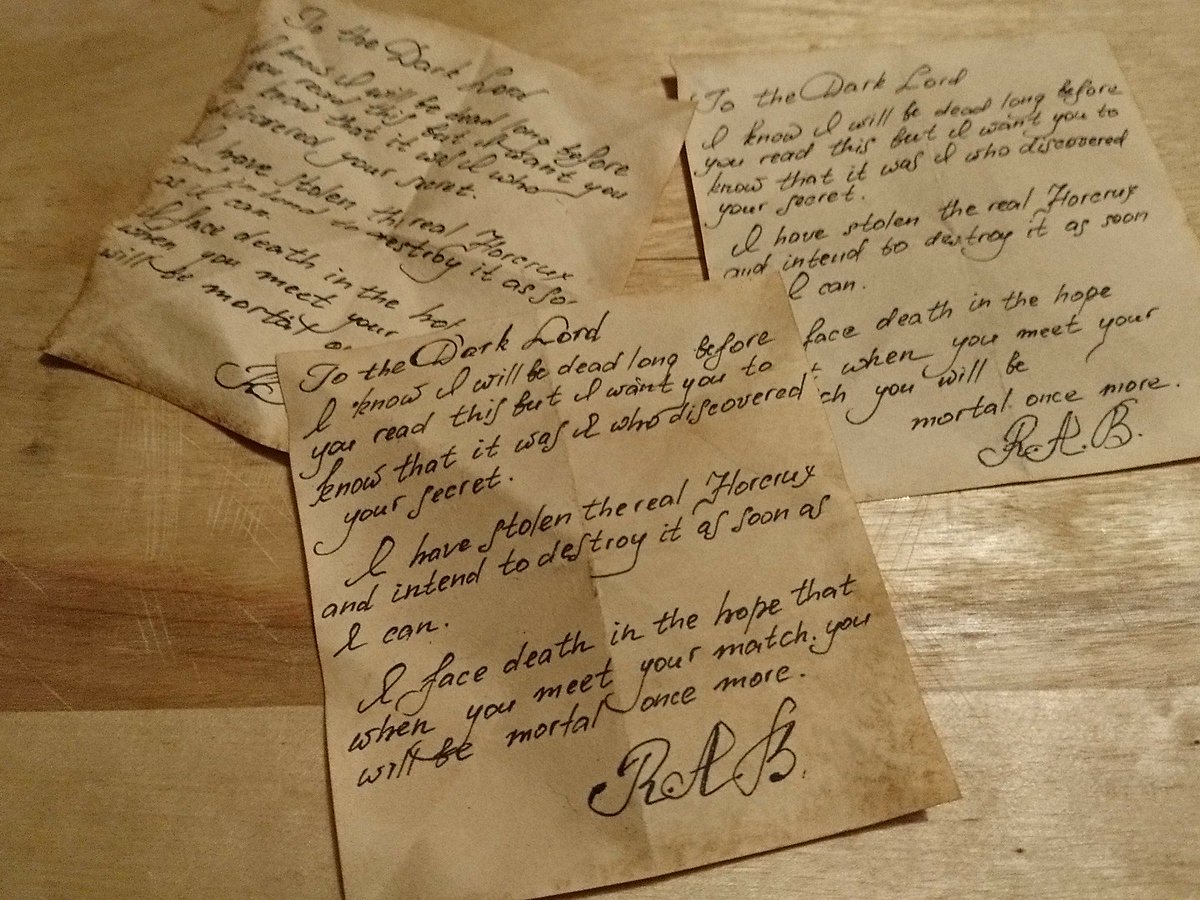 To the Dark Lord
I know I will be dead long before
you read this but I want you
to know that it was I who
discovered your secret.
I have stolen the real Horcrux
and intend to destroy it as soo
as I can.
I face death in the ho
when you meet your
will be mortal
To the Dark Lord
I know I will be dead long before
you read this but I want you to
know that it was I who discovered
your secret.
I have stolen the real Horcrux
and intend to destroy it as soon
I can.
face death in the hope
when you meet your
ch you will be
mortal once more.
R.A.B.
To the Dark Lord
I know I will be dead long before
you read this but I want you to
know that it was I who discovered
your secret.
I have stolen the real Horcrux
and intend to destroy it as soon as
I can.
I face death in the hope that
when you meet your match. you
will be mortal once more.
R.A.B.